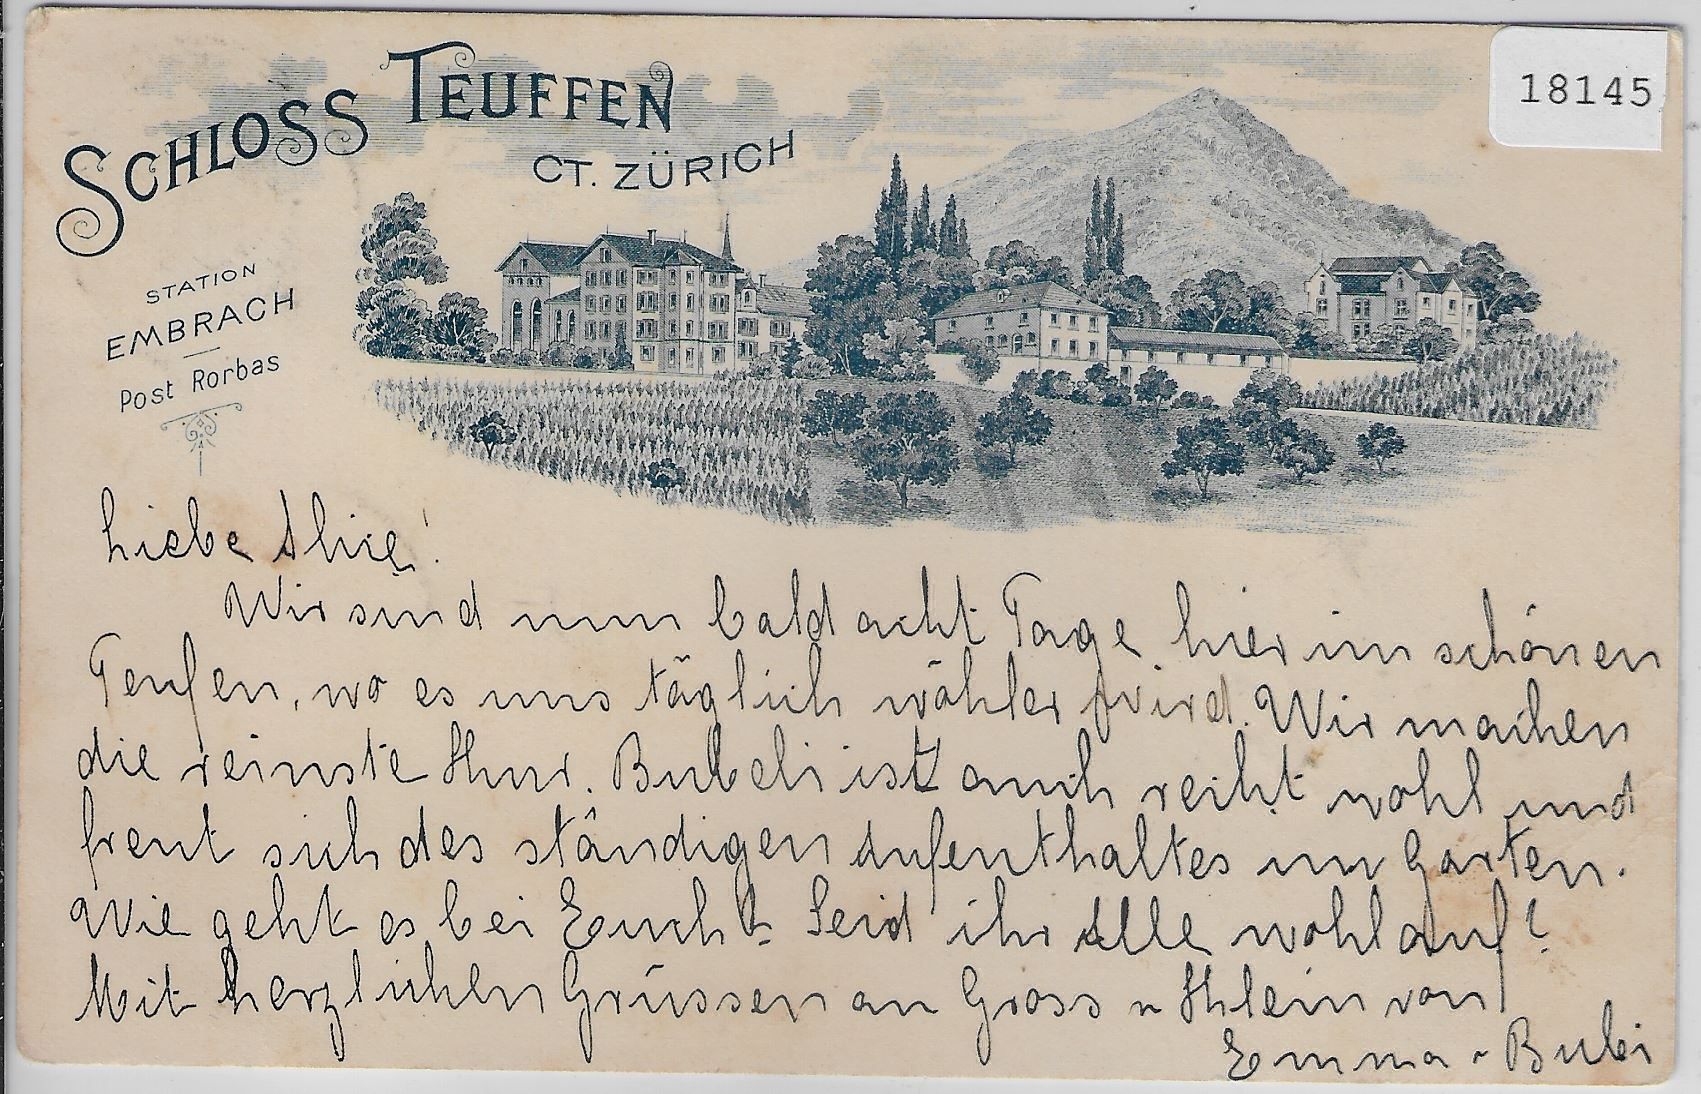 SCHLOSS TEUFFEN
CT. ZÜRICH
18145
STATION
EMBRACH
Post Rorbas
Liebe !
Wir sind nun bald acht Tage hier im schönen
Teufen, wo es uns täglich wöhler wird. Wir machen
die reinste Kur. Bubeli ist auch recht wohl und
freut sich des ständigen Aufenthaltes im Garten.
Wie geht es bei Euch? Seid ihr Alle wohlauf?
Mit herzlichen Grüssen an Gross u Klein von
Emma u Bubi